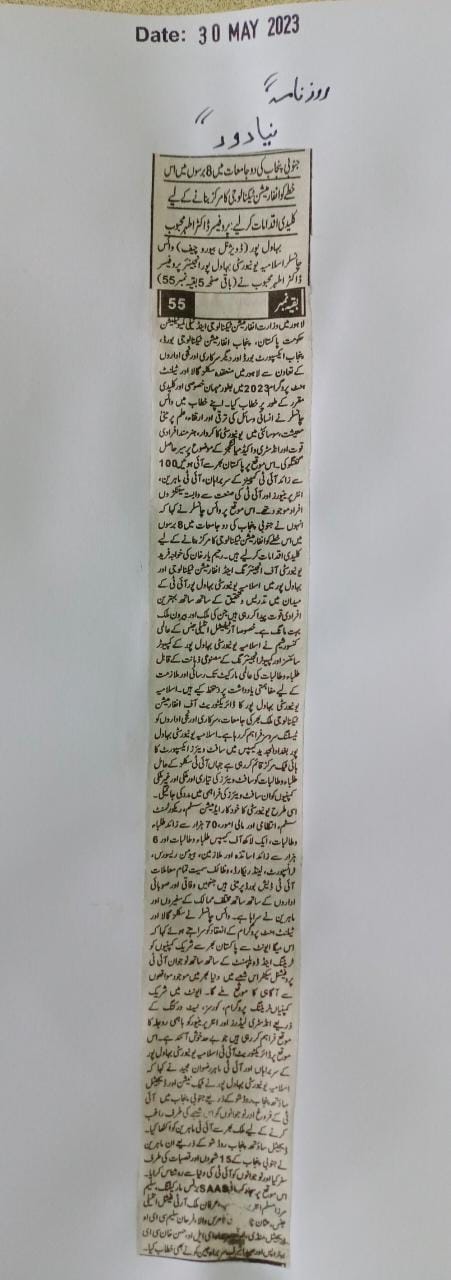 Date: 30 MAY 2023
روزنامہ
نیا دور
جنوبی پنجاب کی دو جامعات میں 8 برسوں میں اس
خطے کو انفارمیشن ٹیکنالوجی کا مرکز بنانے کے لیے
کلیدی اقدامات کر لیے: پروفیسر ڈاکٹر اطہر محبوب
بہاول پور (ڈویژنل بیورو چیف) وائس
چانسلر اسلامیہ یونیورسٹی بہاول پور انجینئر پروفیسر
ڈاکٹر اطہر محبوب نے (باقی صفحہ 5 بقیہ نمبر 55)
بقیہ نمبر 55
لاہور میں وزارت انفارمیشن ٹیکنالوجی اینڈ ٹیلی کمیونیکیشن
حکومت پاکستان، پنجاب انفارمیشن ٹیکنالوجی بورڈ،
پنجاب ایکسپورٹ بورڈ اور دیگر سرکاری اور نجی اداروں
کے تعاون سے لاہور میں منعقدہ سکلز گالا اور ٹیلنٹ
ہنٹ پروگرام 2023 میں بطور مہمان خصوصی اور کلیدی
مقرر کے طور پر خطاب کیا۔ اپنے خطاب میں وائس
چانسلر نے انسانی وسائل کی ترقی اور ارتقاء، علم پر مبنی
معیشت، سوسائٹی میں یونیورسٹی کا کردار، ہنر مند افرادی
قوت اور انڈسٹری و اکیڈمیا لنکجز کے موضوع پر سیر حاصل
گفتگو کی۔ اس موقع پر پاکستان بھر سے آئی ہوئیں 100
سے زائد آئی ٹی کمپنیز کے سربراہان، آئی ٹی ماہرین،
انٹرپرینیورز اور آئی ٹی کی صنعت سے وابستہ سینکڑوں
افراد موجود تھے۔ اس موقع پر وائس چانسلر نے کہا کہ
انہوں نے جنوبی پنجاب کی دو جامعات میں 8 برسوں
میں اس خطے کو انفارمیشن ٹیکنالوجی کا مرکز بنانے کے لیے
کلیدی اقدامات کر لیے ہیں۔ رحیم یار خان کی خواجہ فرید
یونیورسٹی آف انجینئرنگ اینڈ انفارمیشن ٹیکنالوجی اور
بہاول پور میں اسلامیہ یونیورسٹی بہاول پور آئی ٹی کے
میدان میں تدریس و تحقیق کے ساتھ ساتھ بہترین
افرادی قوت پیدا کر رہی ہیں جن کی ملک اور بیرون ملک
بہت مانگ ہے۔ خصوصاً آرٹیفیشل انٹیلی جنس کے عالمی
کنسورشیم نے اسلامیہ یونیورسٹی بہاول پور کے کمپیوٹر
سائنسز اور کمپیوٹر انجینئرنگ کے مصنوعی ذہانت کے قابل
طلباء و طالبات کی عالمی مارکیٹ تک رسائی اور ملازمت
کے لیے مفاہمتی یادداشت پر دستخط کیے ہیں۔ اسلامیہ
یونیورسٹی بہاول پور کا ڈائریکٹوریٹ آف انفارمیشن
ٹیکنالوجی ملک بھر کی جامعات، سرکاری اور نجی اداروں کو
ٹیسٹنگ سروسز فراہم کر رہا ہے۔ اسلامیہ یونیورسٹی بہاول
پور بغداد الجدید کیمپس میں سافٹ ویئرز ایکسپورٹ کا
ہائی ٹیک مرکز قائم کر رہی ہے جہاں آئی ٹی سکلز کے حامل
طلباء و طالبات کو سافٹ ویئرز کی تیاری اور ملکی اور غیر ملکی
کمپنیوں کو ان سافٹ ویئرز کی فراہمی میں مدد کی جائیگی۔
اسی طرح یونیورسٹی کا خود کار ایڈمیشن سسٹم، ریکروٹمنٹ
سسٹم، انتظامی اور مالی امور، 70 ہزار سے زائد طلباء
و طالبات، ایک لاکھ آف کیمپس طلباء و طالبات اور 6
ہزار سے زائد اساتذہ اور ملازمین، ہیومن ریسورس،
ٹرانسپورٹ، لینڈ ریکارڈ، وظائف سمیت تمام معاملات
آئی ٹی ڈیش بورڈ پر مبنی ہیں جنہیں وفاقی اور صوبائی
اداروں کے ساتھ ساتھ مختلف ممالک کے سفیروں اور
ماہرین نے سراہا ہے۔ وائس چانسلر نے سکلز گالا اور
ٹیلنٹ ہنٹ پروگرام کے انعقاد کو سراہتے ہوئے کہا کہ
اس میگا ایونٹ سے پاکستان بھر سے شریک کمپنیوں کو
ٹریننگ اینڈ ڈویلپمنٹ کے ساتھ ساتھ نوجوان آئی ٹی
پروفیشنلز کیلئے اس شعبے میں دنیا بھر میں موجود مواقعوں
سے آگاہی کا موقع ملے گا۔ ایونٹ میں شریک
کمپنیاں ٹریننگ پروگرام، کورسز، نیٹ ورکنگ کے
ذریعے انڈسٹری لیڈرز اور انٹرپرینیورز کو باہمی روابط کا
موقع فراہم کر رہی ہیں جو بے حد خوش آئند ہے۔ اس
موقع پر ڈائریکٹوریٹ آئی ٹی اسلامیہ یونیورسٹی بہاول پور
کے سربراہان اور آئی ٹی ماہر رضوان مجید نے کہا کہ
اسلامیہ یونیورسٹی بہاول پور نے ٹیک نیشن اور ڈیجیٹل
ساؤتھ پنجاب روڈ شو کے ذریعے جنوبی پنجاب میں آئی
ٹی کے فروغ اور نوجوانوں کو اس شعبے کی طرف راغب
کرنے کے لیے ملک بھر سے آئی ٹی ماہرین کو اکٹھا کیا۔
ڈیجیٹل ساؤتھ پنجاب روڈ شو کے ذریعے ان ماہرین
نے جنوبی پنجاب کے 15 شہروں اور قصبات کی طرف
سفر کیا اور نوجوانوں کو آئی ٹی کی دنیا سے روشناس کرایا۔
اس موقع پر SAAS بزنس مارکیٹنگ، سلیم
عرفان ملک آرٹیفیشل انٹیلی
جنس، عثمان فرحان سلیم سی ای او
ڈیجیٹل اور حسن خان سی ای
نے بھی خطاب کیا۔